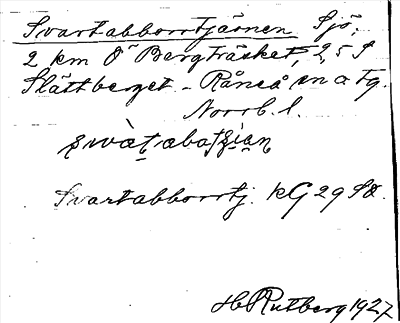 Svartabborrtjärnen Sjö,
2 km Ö Bergträsket, 2,5 S
Slättberget - Råneå sn o tg.
Norrb. l.
Svartabborrtj. KG 29 SO.
HRutberg 1927